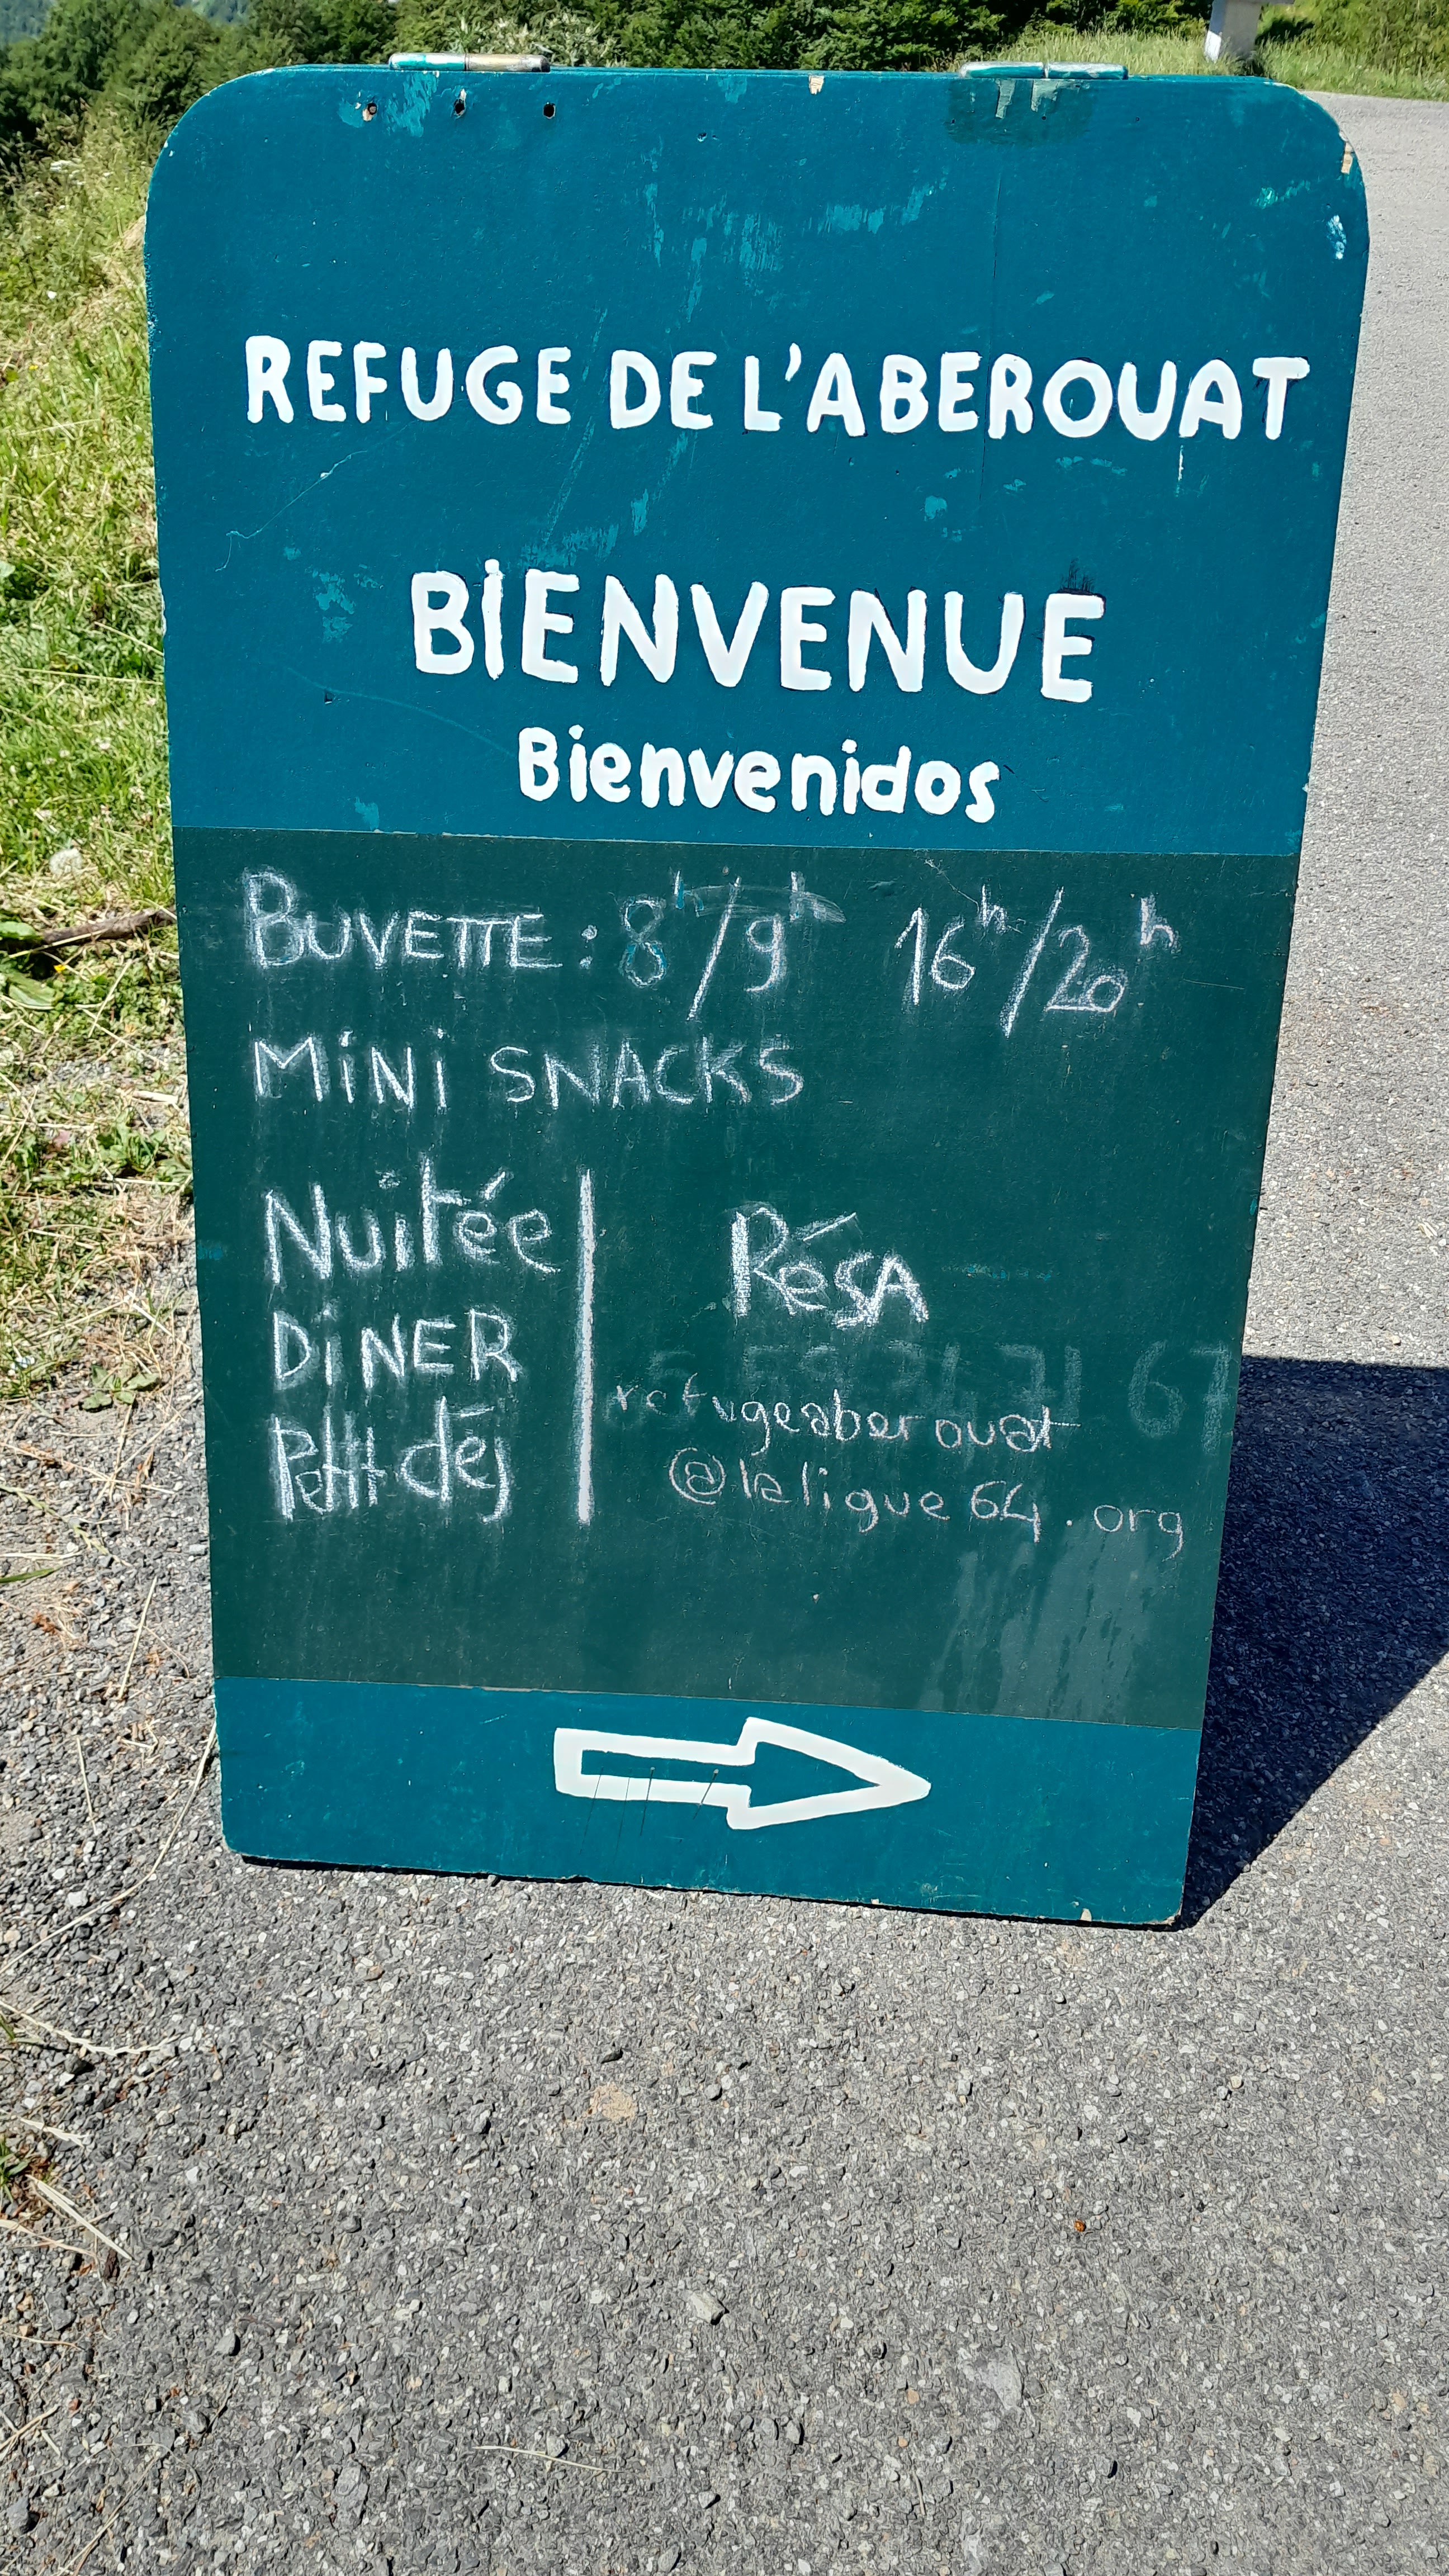 REFUGE DE L'ABEROUAT
BIENVENUE
Bienvenidos
BUVETTE : 8h/9h 16h/20h
MINI SNACKS
Nuitée
DINER
Petit dej
RéSA
refugeaberouat
@laligue64.org